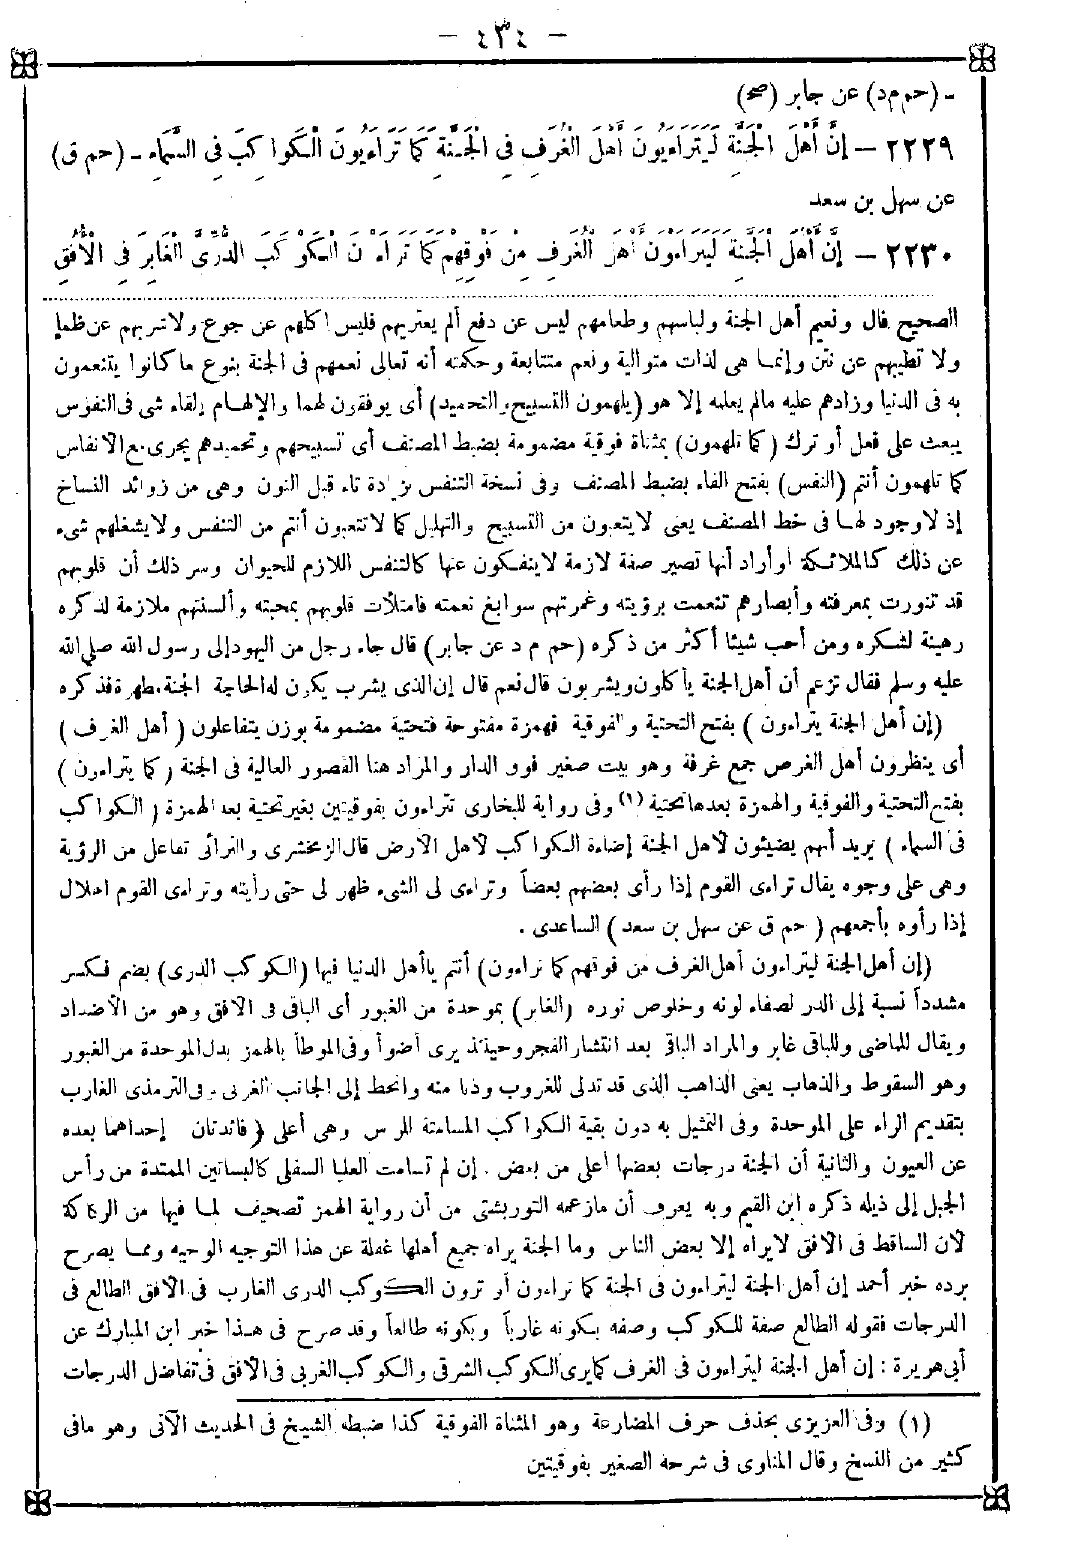 – ٤٣٤ –
- (حم م د) عن جابر (صح)
٢٢٢٩ – إِنَّ أَهْلَ الْجَنَّةِ لَيَتَرَاءَيُونَ أَهْلَ الْغُرَفِ فِي الْجَنَّةِ كَمَا تَرَاءَيُونَ الْكَوَاكِبَ فِي السَّمَاءِ - (حم ق)
عن سهل بن سعد
٢٢٣٠ – إِنَّ أَهْلَ الْجَنَّةِ لَيَتَرَاءَوْنَ أَهْلَ الْغُرَفِ مِنْ فَوْقِهِمْ كَمَا تَرَاءَوْنَ الْكَوْكَبَ الدُّرِّيَّ الْغَابِرَ فِي الْأُفُقِ
الصحيح قال ونعيم أهل الجنة ولباسهم وطعامهم ليس عن دفع ألم يعتريهم فليس أكلهم عن جوع ولا شربهم عن ظمإ
ولا تطيبهم عن نتن وإنما هى لذات متوالية ونعم متتابعة وحكمته أنه تعالى نعمهم فى الجنة بنوع ما كانوا يتنعمون
به فى الدنيا وزادهم عليه مالم يعلمه إلا هو (يلهمون التسبيح والتحميد) أى يوفقون لهما والإلهام إلقاء شى فى النفوس
يبعث على فعل أو ترك (كما تلهمون) بمثناة فوقية مضمومة بضبط المصنف أى تسبيحهم وتحميدهم يجرى مع الأنفاس
كما تلهمون أنتم (النفس) بفتح الفاء بضبط المصنف وفى نسخة التنفس بزيادة تاء قبل النون وهى من زوائد النساخ
إذ لا وجود لها فى خط المصنف يعنى لا يتعبون من التسبيح والتهليل كما لا تتعبون أنتم من التنفس ولا يشغلهم شىء
عن ذلك كالملائكة أو أراد أنها تصير صفة لازمة لا ينفكون عنها كالتنفس اللازم للحيوان وسر ذلك أن قلوبهم
قد تنورت بمعرفته وأبصارهم تنعمت برؤيته وغمرتهم سوابغ نعمته فامتلأت قلوبهم بمحبته وألسنتهم ملازمة لذكره
رهينة لشكره ومن أحب شيئا أكثر من ذكره (حم م د عن جابر) قال جاء رجل من اليهود إلى رسول الله صلى الله
عليه وسلم فقال تزعم أن أهل الجنة يأكلون ويشربون قال نعم قال إن الذى يشرب يكون له الحاجة الجنة مطهرة فذكره
(إن أهل الجنة يتراءون) بفتح التحتية والفوقية فهمزة مفتوحة فتحتية مضمومة بوزن يتفاعلون (أهل الغرف)
أى ينظرون أهل الغرص جمع غرفة وهو بيت صغير فوق الدار والمراد هنا القصور العالية فى الجنة (كما يتراءون)
بفتح التحتية والفوقية والهمزة بعدها تحتية (١) وفى رواية للبخارى تتراءون بفوقيتين بغير تحتية بعد الهمزة (الكواكب
فى السماء) يريد أنهم يضيئون لأهل الجنة إضاءة الكواكب لأهل الأرض قال الزمخشرى والترائى تفاعل من الرؤية
وهى على وجوه يقال تراءى القوم إذا رأى بعضهم بعضاً وتراءى لى الشىء ظهر لى حتى رأيته وتراءى القوم الهلال
إذا رأوه بأجمعهم (حم ق عن سهل بن سعد) الساعدى .
(إن أهل الجنة ليتراءون أهل الغرف من فوقهم كما تراءون) أنتم يا أهل الدنيا فيها (الكوكب الدرى) بضم فكسر
مشدداً نسبة إلى الدر لصفاء لونه وخلوص نوره (الغابر) بموحدة من الغبور أى الباقى فى الأفق وهو من الأضداد
ويقال للماضى وللباقى غابر والمراد الباقى بعد انتشار الفجر وحينئذ يرى أضوأ وفى الموطأ بالهمز بدل الموحدة من الغبور
وهو السقوط والذهاب يعنى الذاهب الذى قد تدلى للغروب ودنا منه وانحط إلى الجانب الغربى وفى الترمذى الغارب
بتقديم الراء على الموحدة وفى التمثيل به دون بقية الكواكب المسامتة للرءس وهى أعلى (فائدتان إحداهما بعده
عن العيون والثانية أن الجنة درجات بعضها أعلى من بعض . إن لم تسامت العليا السفلى كالبساتين الممتدة من رأس
الجبل إلى ذيله ذكره ابن القيم وبه يعرف أن مازعمه التوربشتى من أن رواية الهمز تصحيف لما فيها من الركاكة
لأن الساقط فى الأفق لا يراه إلا بعض الناس وما الجنة يراه جميع أهلها غفلة عن هذا التوجيه الوجيه ومما يصرح
برده خبر أحمد إن أهل الجنة ليتراءون فى الجنة كما تراءون أو ترون الكوكب الدرى الغارب فى الأفق الطالع فى
الدرجات فقوله الطالع صفة للكوكب وصفه بكونه غارباً وبكونه طالعاً وقد صرح فى هذا خبر ابن المبارك عن
أبى هريرة : إن أهل الجنة ليتراءون فى الغرف كما يرى الكوكب الشرقى والكوكب الغربى فى الأفق فى تفاضل الدرجات
(١) وفى العزيزى بحذف حرف المضارعة وهو المثناة الفوقية كذا ضبطه الشيخ فى الحديث الآتى وهو مافى
كثير من النسخ وقال المناوى فى شرحه الصغير بفوقيتين